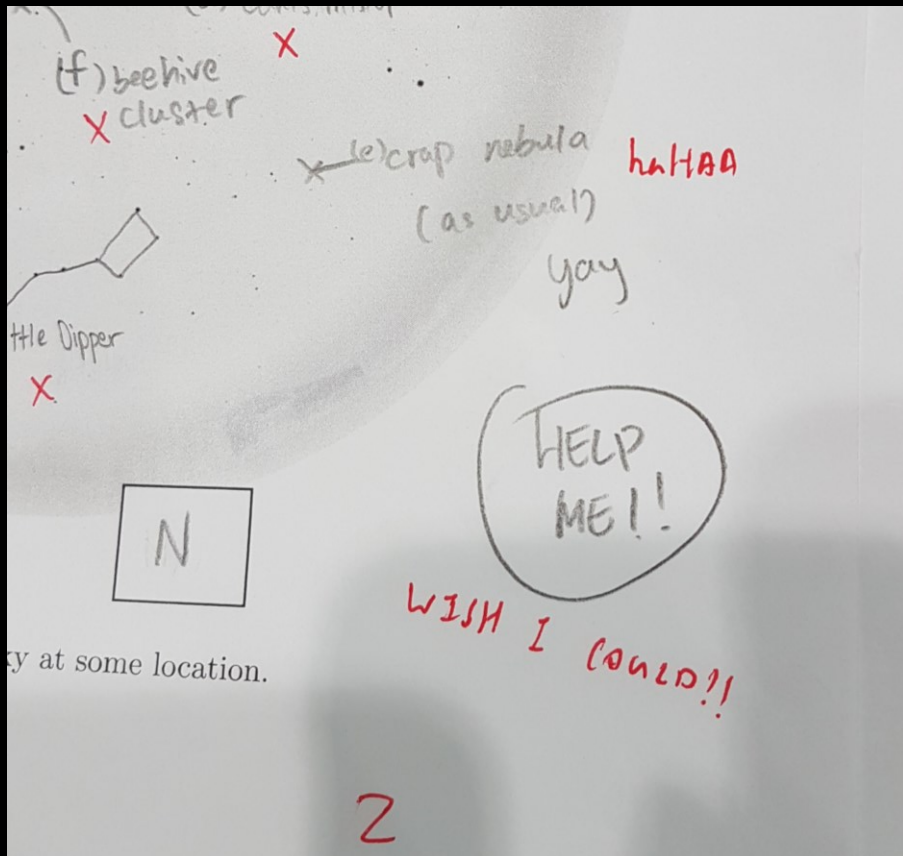 X
(f) beehive
X cluster
X (e) crap nebula haHAA
(as usual)
yay
ttle Dipper
X
HELP
ME!!
N
WISH I COULD!!
ky at some location.
2